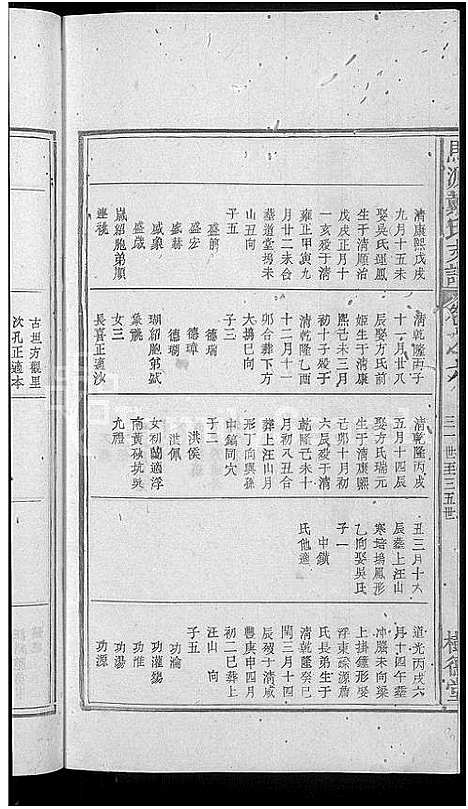 馬源戴氏支譜
卷之六
三一世至三五世
樹德堂
清康熙戊戌
九月十五未
娶吳氏運鳳
生于清順治
戊戌正月十
一亥歿于清
雍正甲寅九
月廿二未合
墓道堂塢
山丑向
子五
盛赫
盛宗
盛裊
胤紹胞弟順
連祧
清乾隆丙子
十一月廿八
辰娶方氏前
姬生于清康
熙己未三月
初十子歿于
清乾隆乙酉
十二月十一
卯合葬下方
大塢巳向
子三
德瑞
德璋
德瑚
瑚紹胞弟斌
女三
長喜正適汐
古坦方觀里
次孔正適本
清乾隆丙戌
五月十四辰
娶方氏瑞元
生于清康熙
己卯十月初
六辰歿于清
乾隆己未十
月初八丑合
葬上汪山月
形丁向與孫
中鎬同穴
子二
洪侯
洪佩
女初蘭適浮
南黃砂坑吳
九禮
丑三月十六
辰墓上汪山
寒培塢鳳形
乙向娶吳氏
子一
中鎮
氏他適
道光丙戌六
月十四午葬
冲廳末向梁
上掛鐘形娶
浮東磔源詹
氏長弟生于
清乾隆癸巳
閏三月十四
辰歿于清咸
豐庚申四月
初二巳葬上
汪山 向
子五
功瀹
功灌
功淮
功湯
功源